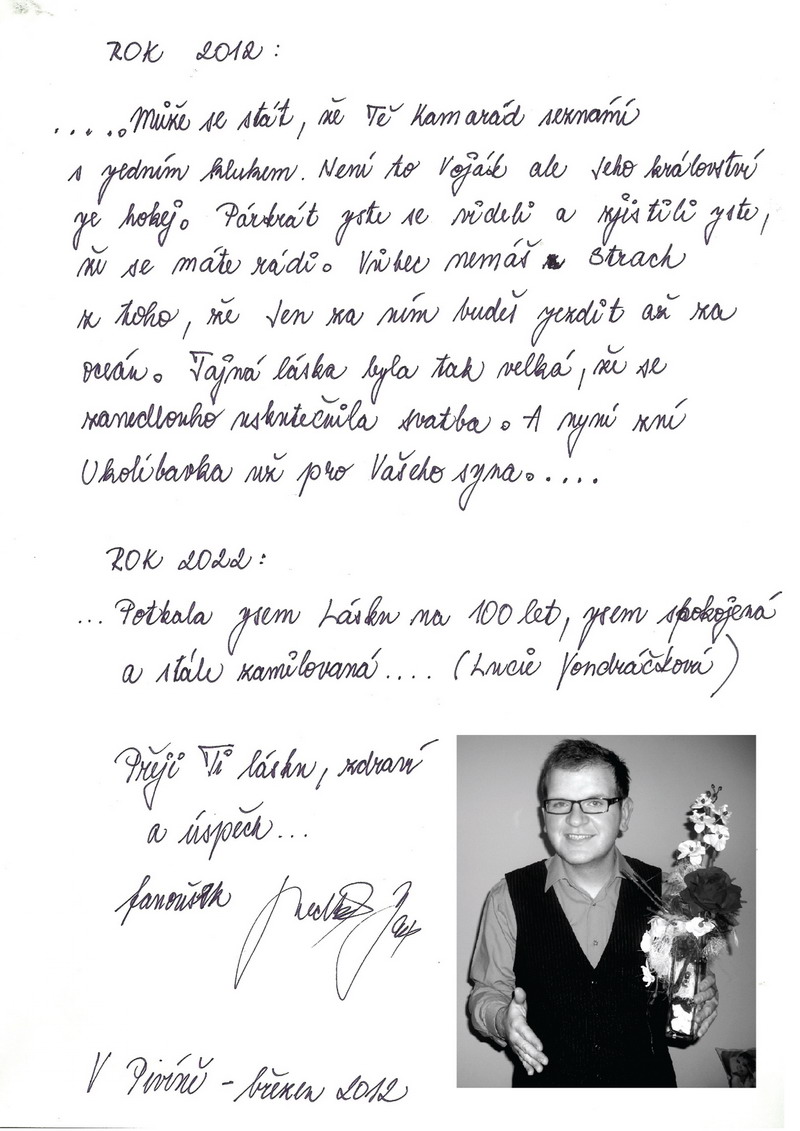 ROK 2012:
.....Může se stát, že Tě Kamarád seznámí
s jedním klukem. Není to Voják ale jeho království
je hokej. Párkrát jste se viděli a zjistili jste,
že se máte rádi. Vůbec nemáš Strach
z toho, že jen za ním budeš jezdit až za
oceán. Tajná láska byla tak velká, že se
zanedlouho uskutečnila svatba. A nyní zní
Ukolíbavka už pro Vašeho syna.....
ROK 2022:
...Potkala jsem Lásku na 100 let, jsem spokojená
a stále zamilovaná.... (Lucie Vondráčková)
Přeji Ti lásku, zdraví
a úspěch...
fanoušek
V Pivíně - březen 2012